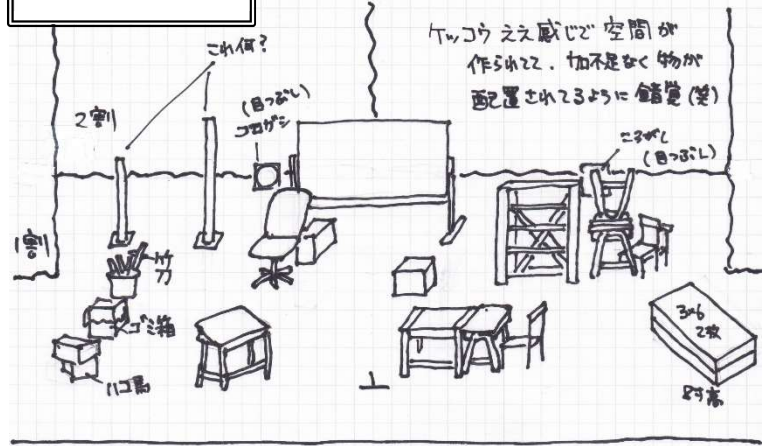 ケッコウ ええ感じで 空間が
作られてて、加不足なく 物が
配置されてるように 錯覚(笑)
これ何?
2割
(目つぶし)
コロガシ
ころがし
(目つぶし)
1割
竹刀
ゴミ箱
ハコ馬
3×6
2枚
8寸高